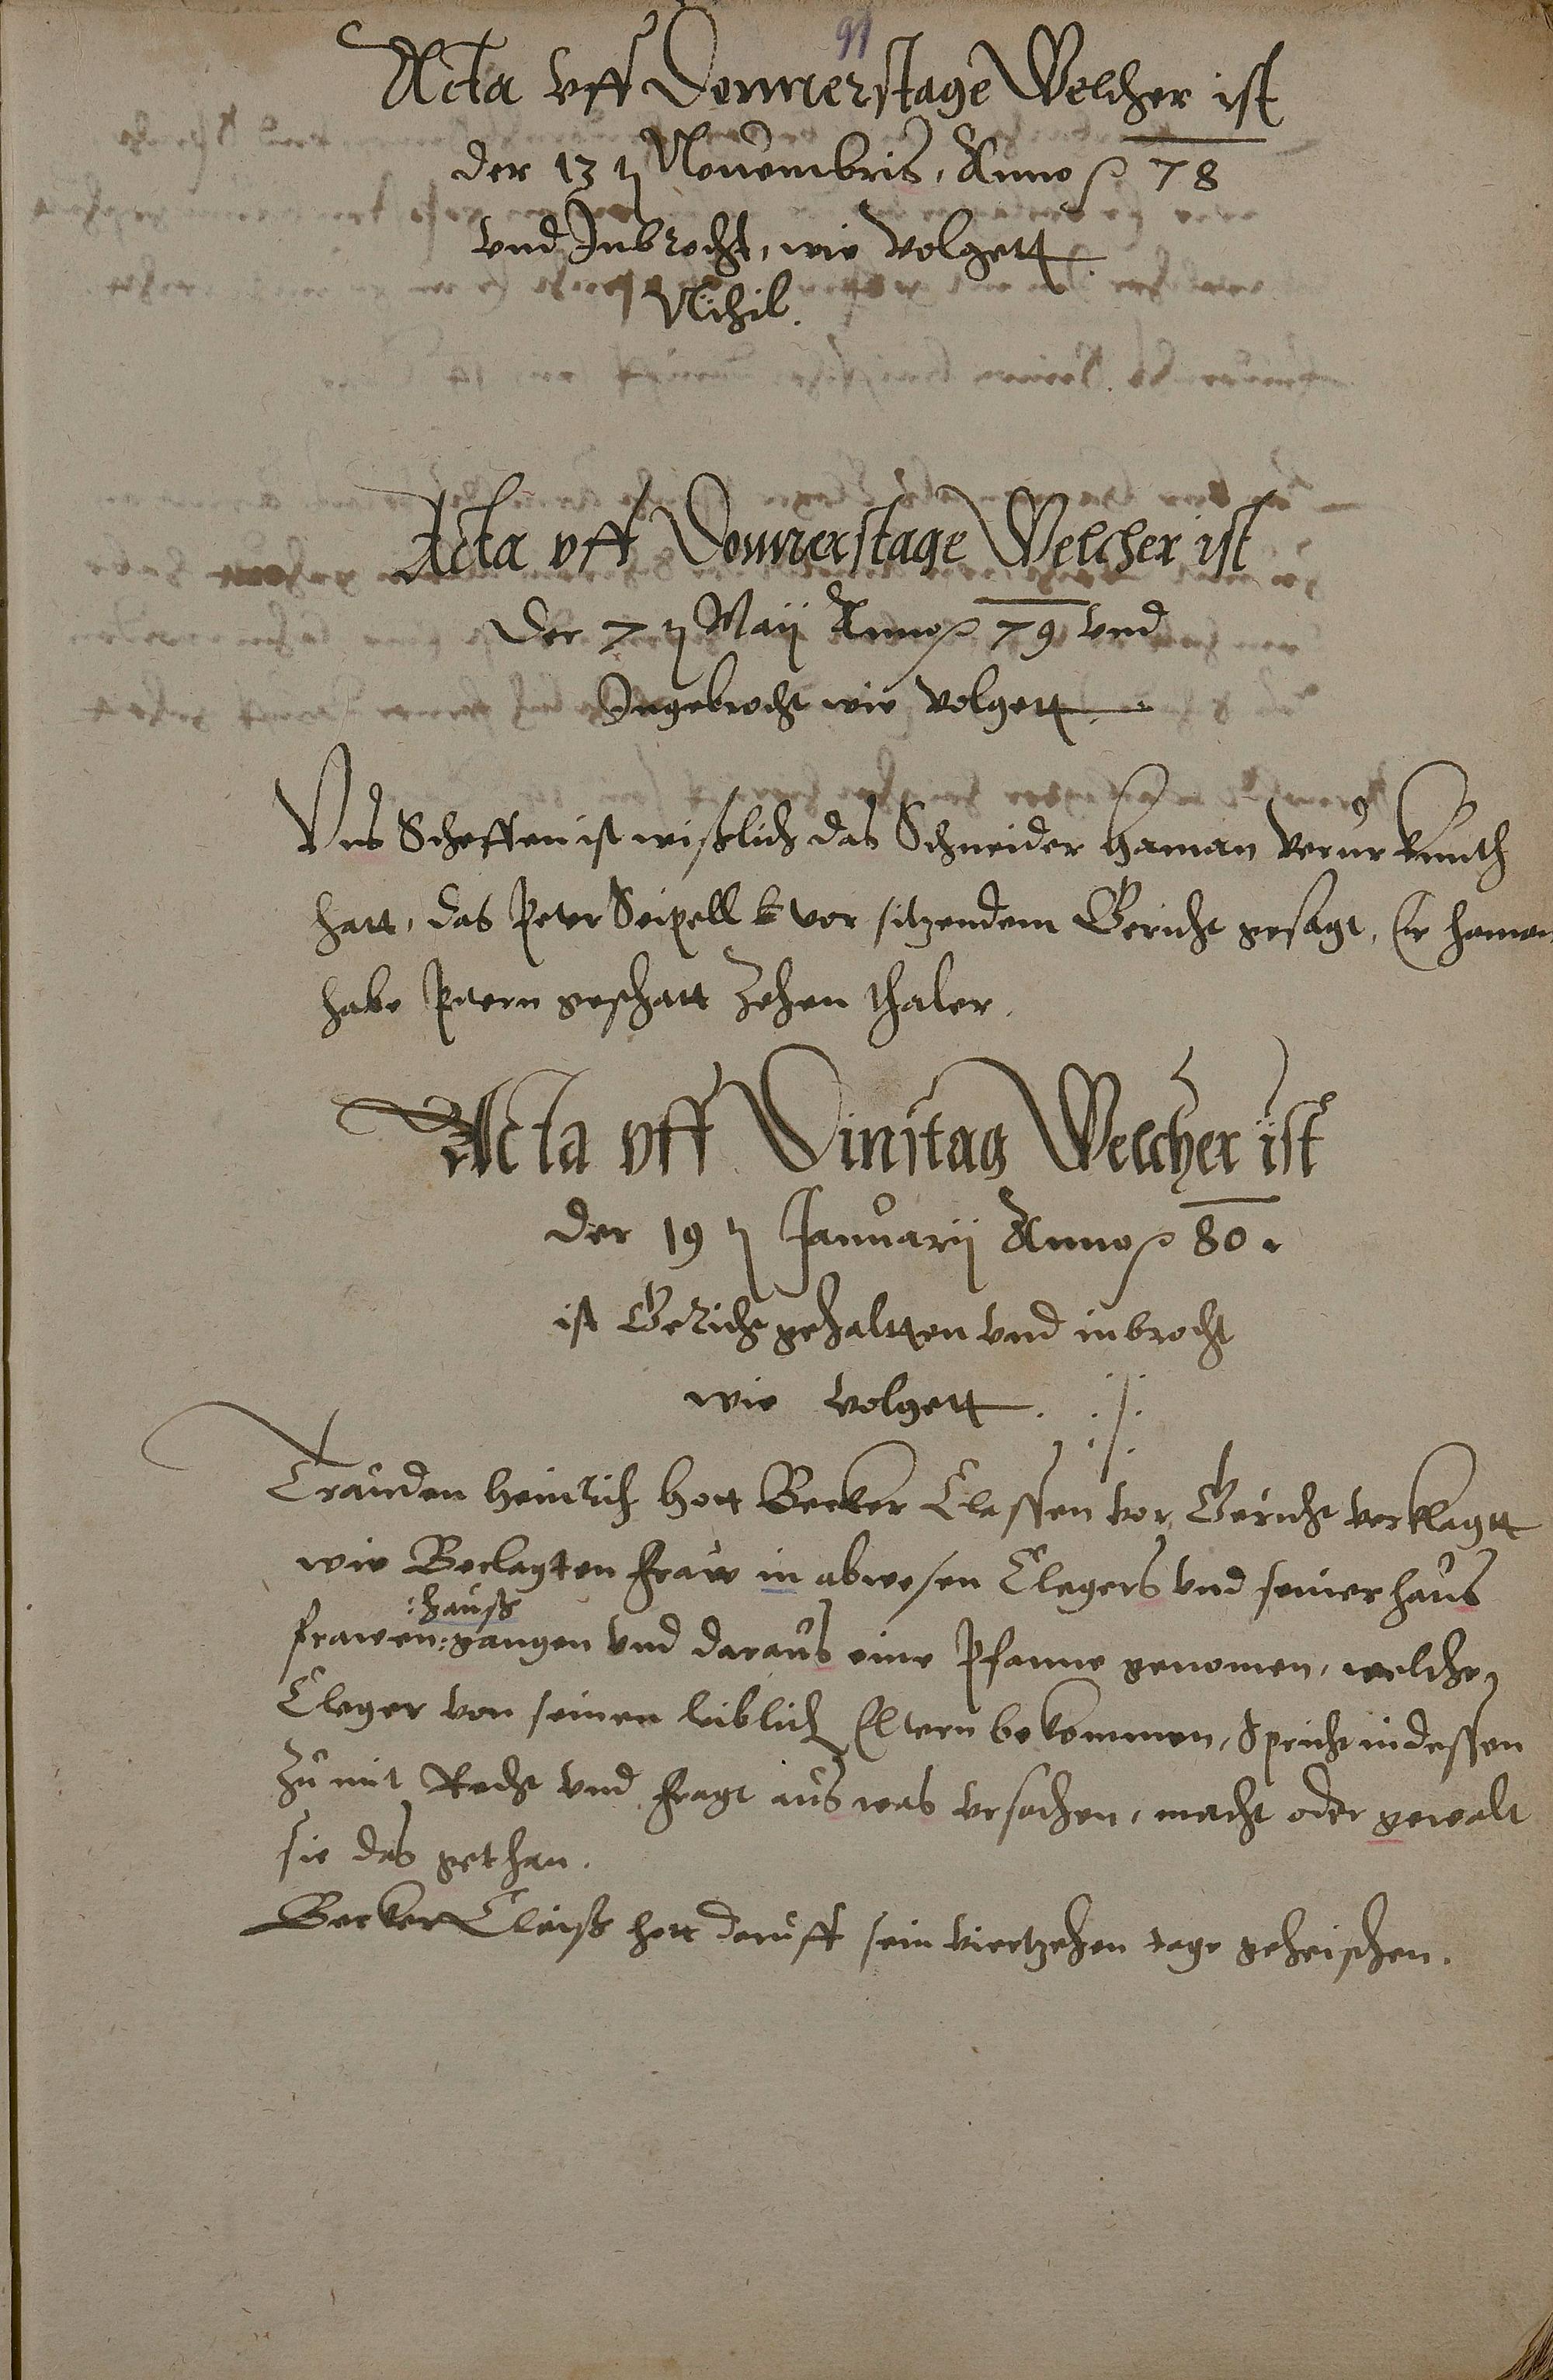 91
Acta vff Donnerstage Welcher ist
der 13 t Nouembris, Anno 78
vnd Inbrocht, wie volgett
Nihil.
Acta vff Donnerstage Welcher ist
der 7 t Maij Anno 79 vnd
Ingebrocht wie volgett
Vns Scheffen ist wißlich das Schneider Haman verur kunth
hatt, das Peter Seipell vor sitzendem Gericht gesagt, Er haman
habe Petern geschatt Zehen thaler.
Acta vff Dinstag Welcher ist
der 19 t Januarij Anno 80.
ist Gericht gehaltten vnd inbrocht
wie volgett.
Trauden Heinrich hott Becker Classen vor Gericht verklagtt
wie Beclagten Fraw in abwesen Clegers vnd seiner haus
:hauß
frawen: gangen vnd daraus eine Pfanne genomen, welche
Cleger von seinen leiblich Eltern bekommen, Spricht in dessen
zu mit Recht vnd fragt aus was vrsachen, macht oder gewalt
sie das gethan.
Becker Claiß hott daruff sein viertzehen tage geheischen.